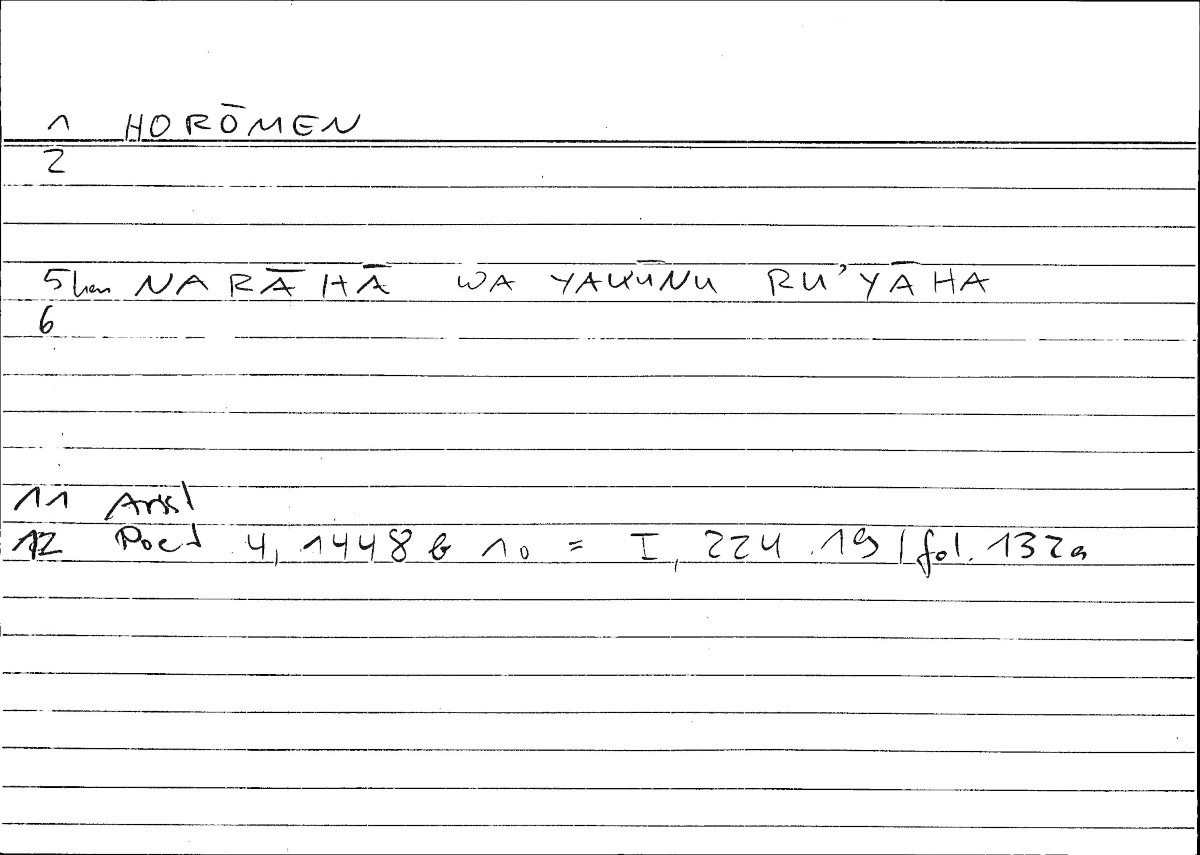 1 HORŌMEN
2
5 NARĀHĀ WA YAKŪNU RU'YĀHA
6
11 Arist
12 Poet 4, 1448 b 10 = I, 224.19 / fol. 132a